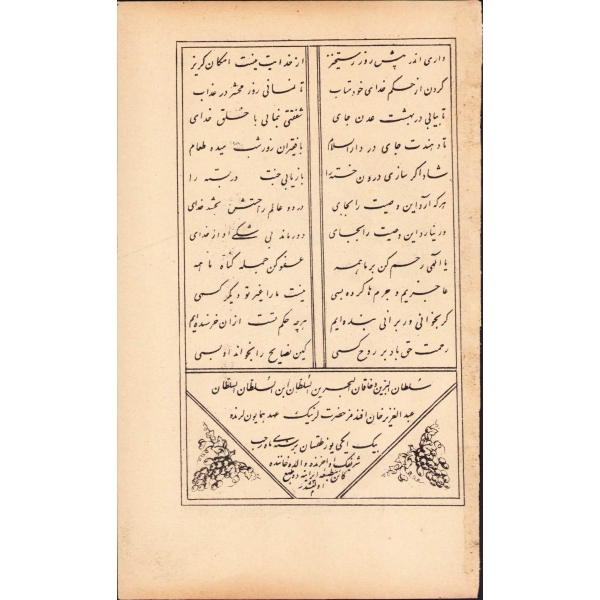 داری اندر پیش روز رستخیز از خدایت نیست امکان گریز
گردن از حکم خدای خود متاب تا نمانی روز محشر در عذاب
تا بیابی در بهشت عدن جای شفقتی بنمای با خلق خدای
تا دهندت جای در دار السلام با فقیران روز و شب میده طعام
شاد اگر سازی درون خسته را باز یابی جنت در بسته را
هر که آرد این وصیت را بجای در دو عالم راحتش بخشد خدای
ور نیارد این وصیت را بجای دور ماند بی شکی او از خدای
یا الهی رحم کن بر ما همه عفو کن جمله گناه ما همه
عاجزیم و جرم ها کرده بسی نیست ما را غیر تو دیگر کسی
گر بخوانی ور برانی بنده ایم هر چه حکم تست از آن خرسنده ایم
رحمت حق باد بر روح کسی کین نصایح را بخواند او بسی
سلطان البرین و خاقان البحرین السلطان ابن السلطان السلطان
عبد العزیز خان افندمز حضرتلرینک عهد همایون لرنده
بیک ایکی یوز طقسان سنه سی ماه رجب
شریفنک اواخرنده والده خاننده
کائن مطبعه ده طبع
اولنمشدر